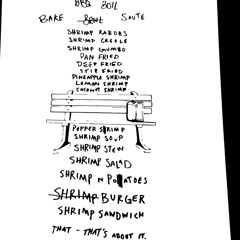 BBQ BOIL
BAKE BROIL SAUTE
SHRIMP KABOBS
SHRIMP CREOLE
SHRIMP GUMBO
PAN FRIED
DEEP FRIED
STIR FRIED
PINEAPPLE SHRIMP
LEMON SHRIMP
COCONUT SHRIMP
PEPPER SHRIMP
SHRIMP SOUP
SHRIMP STEW
SHRIMP SALAD
SHRIMP N POTATOES
SHRIMP BURGER
SHRIMP SANDWICH
THAT - THAT'S ABOUT IT.